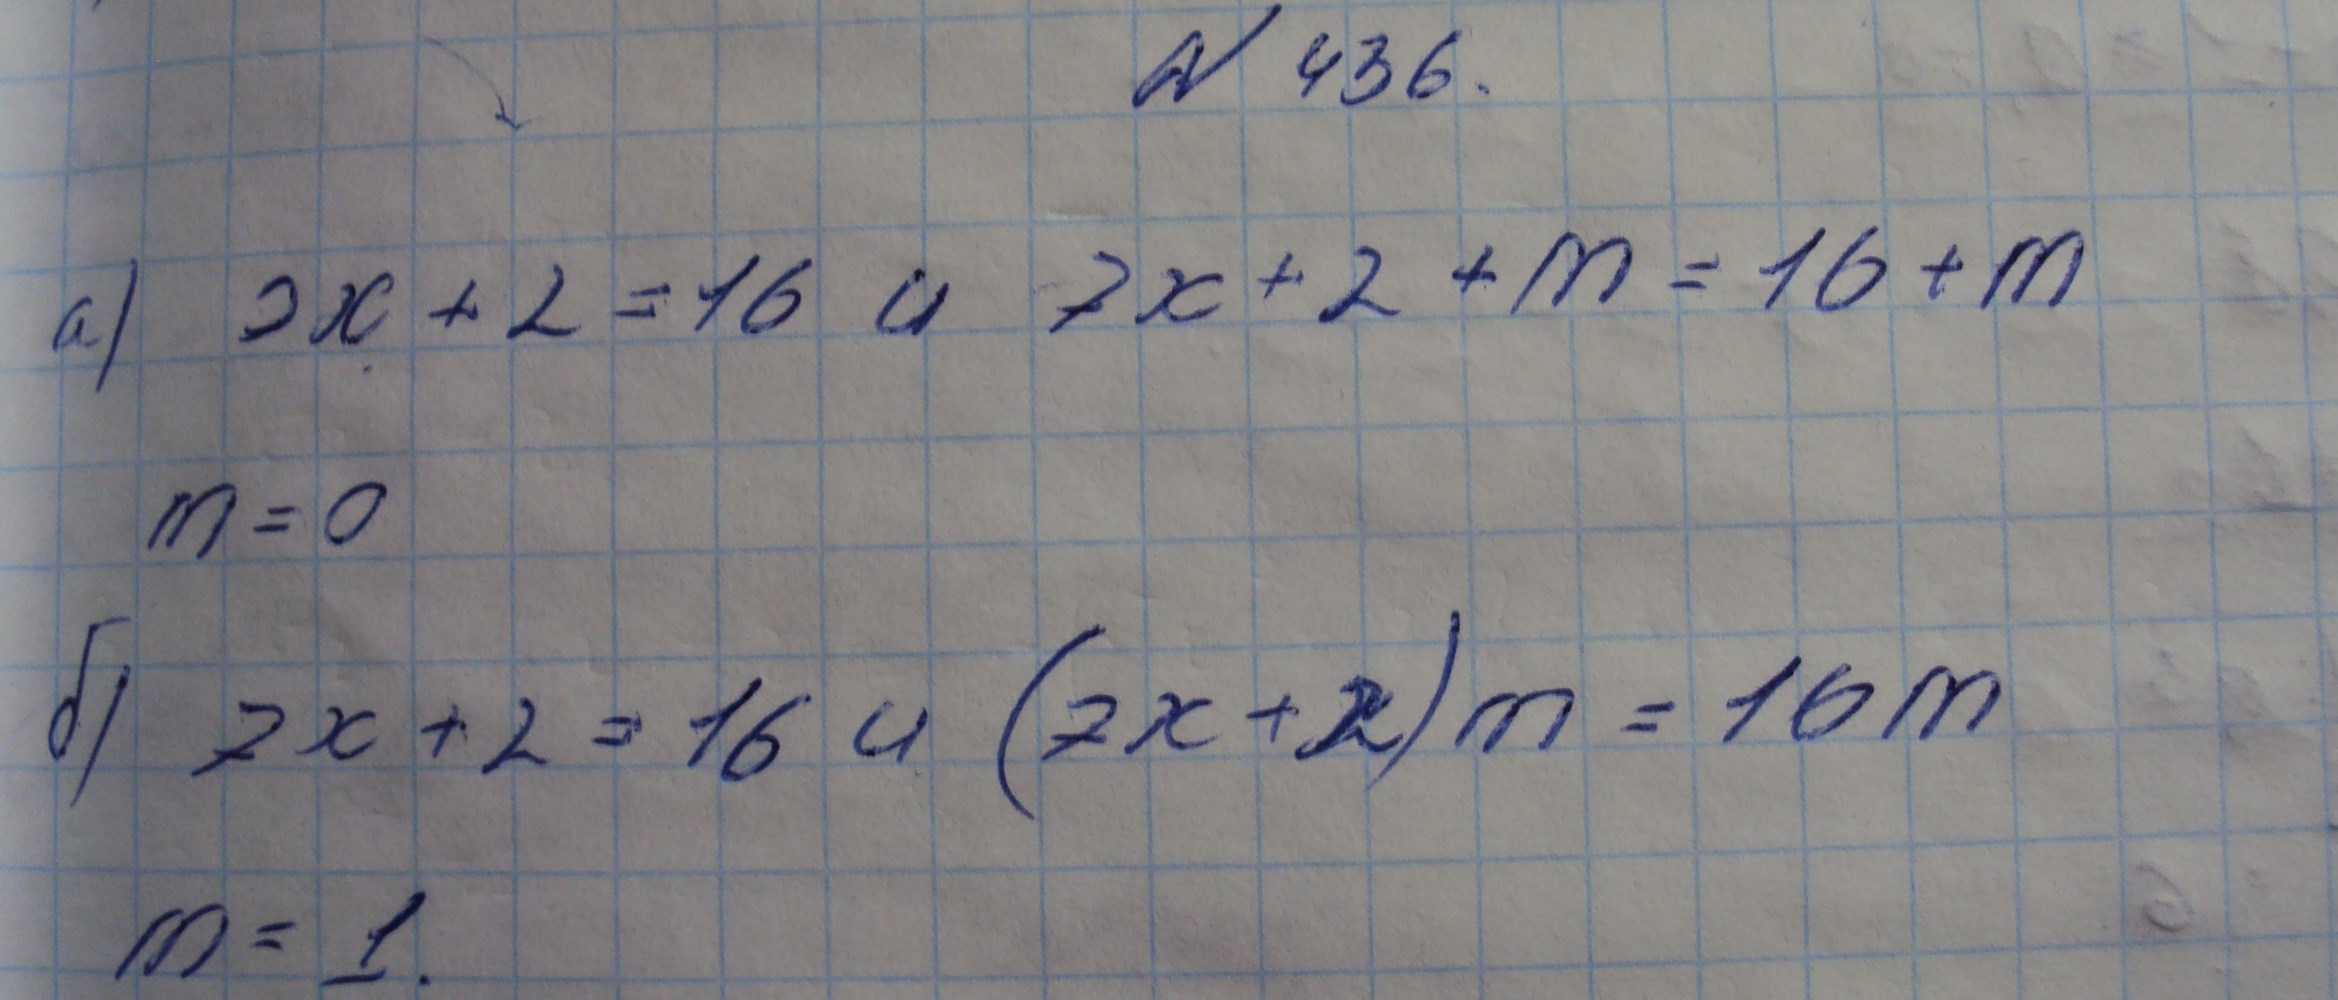 № 436.
а) 7x + 2 = 16 и 7x + 2 + m = 16 + m
m = 0
б) 7x + 2 = 16 и (7x + 2) m = 16 m
m = 1.